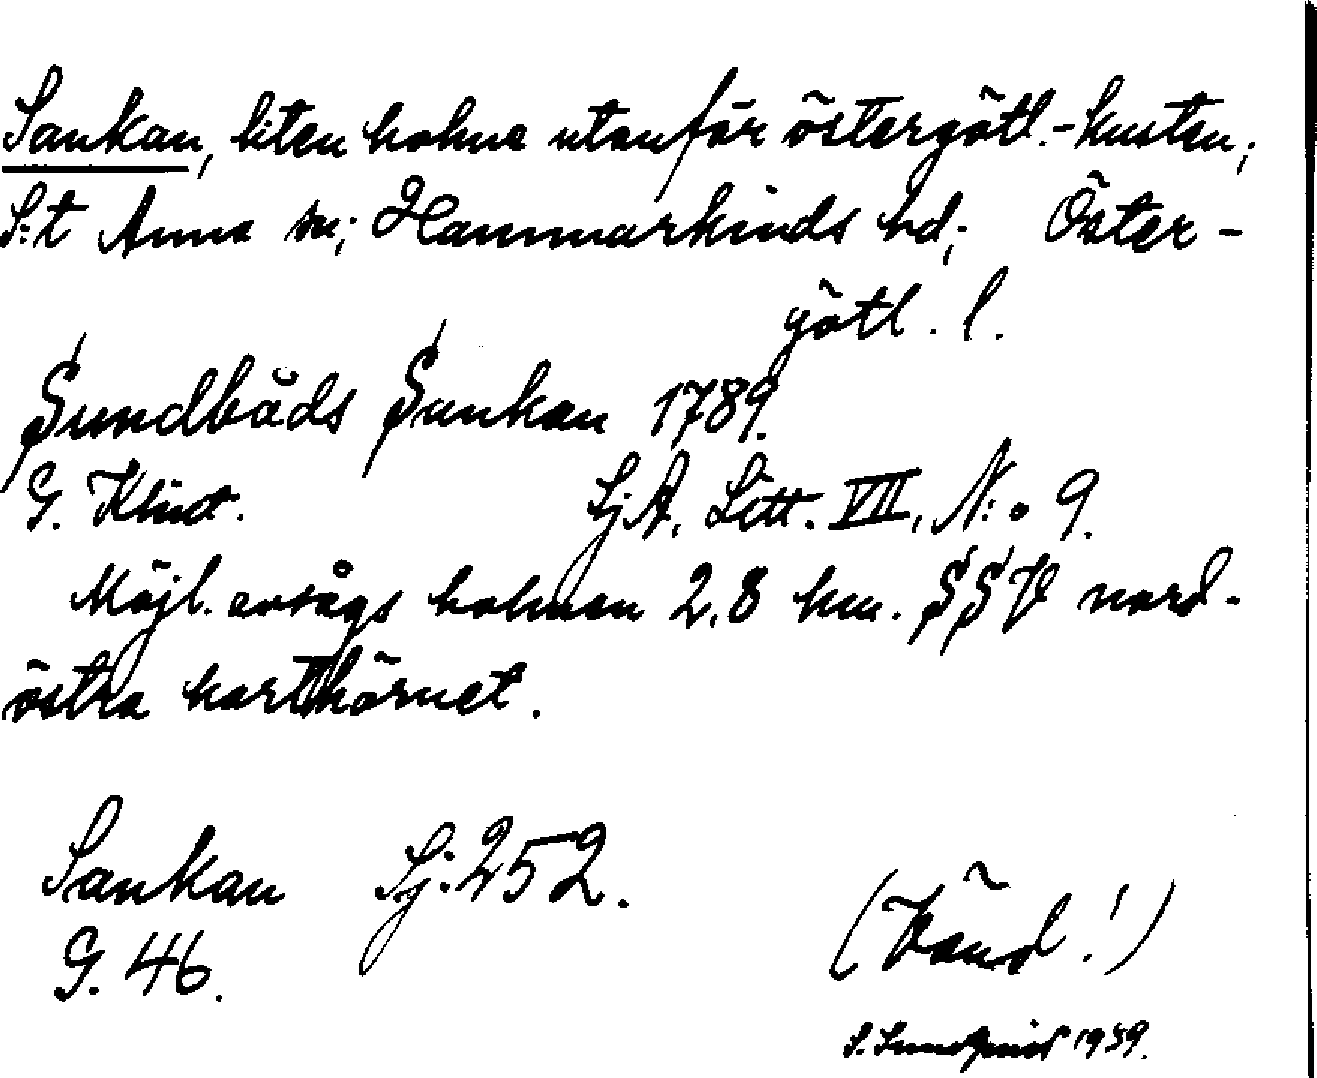 Sankan, liten holme utanför östergötl.-kusten;
S:t Anna sn; Hammarkinds hd; Öster-
götl. l.
Sundbåds Sankan 1789.
G. Klint. SjA, Litt. VII, N:o 9.
Möjl. avsågs holmen 2,8 km. SSV nord-
östra karthörnet.
Sankan Sj: 252.
G. 46.
(Vänd!)
S. Sundquist 1939.